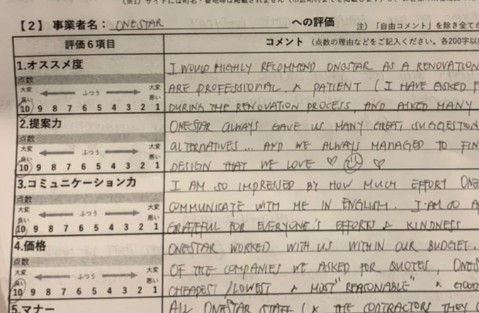 【2】事業者名： ONESTAR への評価 注）「自由コメント」を除き全てが
評価6項目 コメント（点数の理由などをご記入ください。各200字以
1.オススメ度
点数
大変良い ふつう 大変悪い
10 9 8 7 6 5 4 3 2 1
I WOULD HIGHLY RECOMMEND ONESTAR AS A RENOVATION
ARE PROFESSIONAL & PATIENT (I HAVE ASKED F
DURING THE RENOVATION PROCESS, AND ASKED MANY
2.提案力
点数
大変良い ふつう 大変悪い
10 9 8 7 6 5 4 3 2 1
ONESTAR ALWAYS GAVE US MANY GREAT SUGGESTION
ALTERNATIVES... AND WE ALWAYS MANAGED TO FIN
DESIGN THAT WE LOVE
3.コミュニケーション力
点数
大変良い ふつう 大変悪い
10 9 8 7 6 5 4 3 2 1
I AM SO IMPRESSED BY HOW MUCH EFFORT ONE
COMMUNICATE WITH ME IN ENGLISH. I AM SO
GRATEFUL FOR EVERYONE'S EFFORTS & KINDNESS
4.価格
点数
大変良い ふつう 大変悪い
10 9 8 7 6 5 4 3 2 1
ONESTAR WORKED WITH US WITHIN OUR BUDGET.
OF THE COMPANIES WE ASKED FOR QUOTES, ONES
CHEAPEST / LOWEST & MOST "REASONABLE" &
5.マナー
ALL ONESTAR STAFF (& THE CONTRACTORS THEY